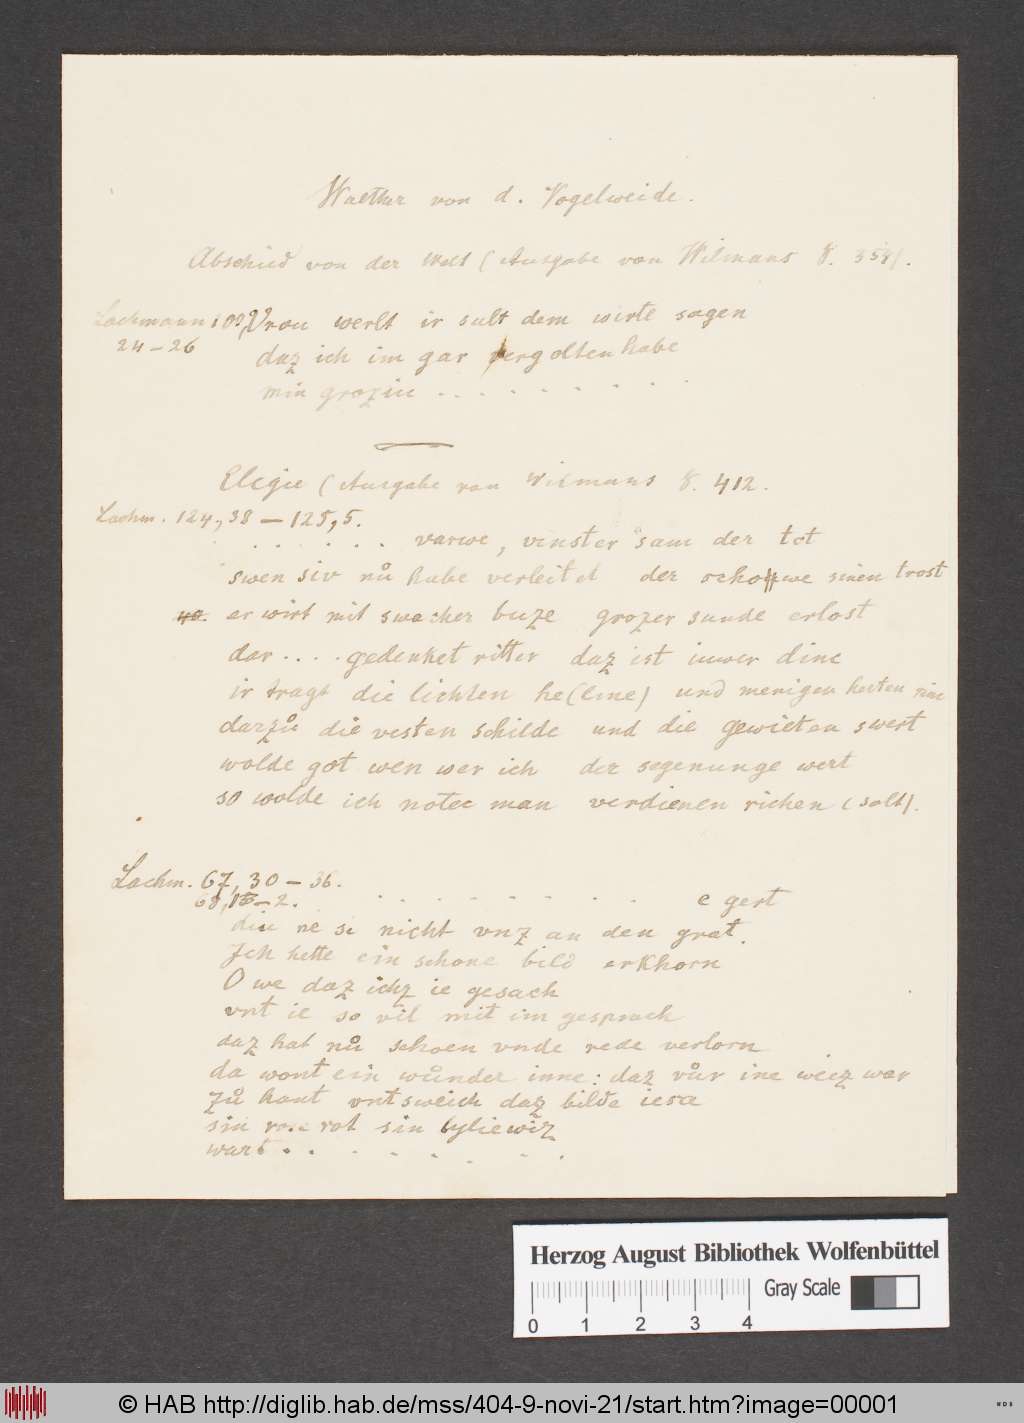 Walther von d. Vogelweide.
Abschied von der Welt (Ausgabe von Wilmans S. 358).
Lachmann 100,
24-26
Vrou werlt ir sult dem wirte sagen
daz ich im gar vergolten habe
min groziu . . . . . . . .
Elegie (Ausgabe von Wilmans S. 412.
Lachm. 124,38 - 125,5.
. . . . . . varwe, vinster sam der tot
swen siv nů habe verleitet der schowwe sinen trost
er wirt mit swacher buze grozer sunde erlost
dar . . . . gedenket ritter daz ist iuwer dinc
ir tragt die lichten he(lme) und menigen herten rinc
darzů die vesten schilde und die gewieten swert
wolde got wen wer ich der segenunge wert
so wolde ich notec man verdienen richen (solt).
Lachm. 67,30 - 36.
. . . . . . . . . e gert
diu ne si nicht vnz an den grat.
Ich hette ein schone bild erkhorn
O we daz ichz ie gesach
vnt ie so vil mit im gesprach
daz hat nů schoen vnde rede verlorn
da wont ein wůnder inne: daz vůr ine weiz war
zů hant vnt sweich daz bilde iesa
sin rose rot sin lyliewiz
wart . . . . . . . .
Herzog August Bibliothek Wolfenbüttel
Gray Scale
0 1 2 3 4
© HAB http://diglib.hab.de/mss/404-9-novi-21/start.htm?image=00001